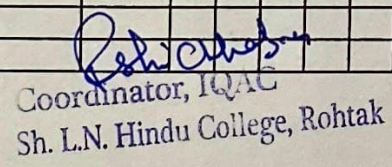 Coordinator, IQAC
Sh. L.N. Hindu College, Rohtak